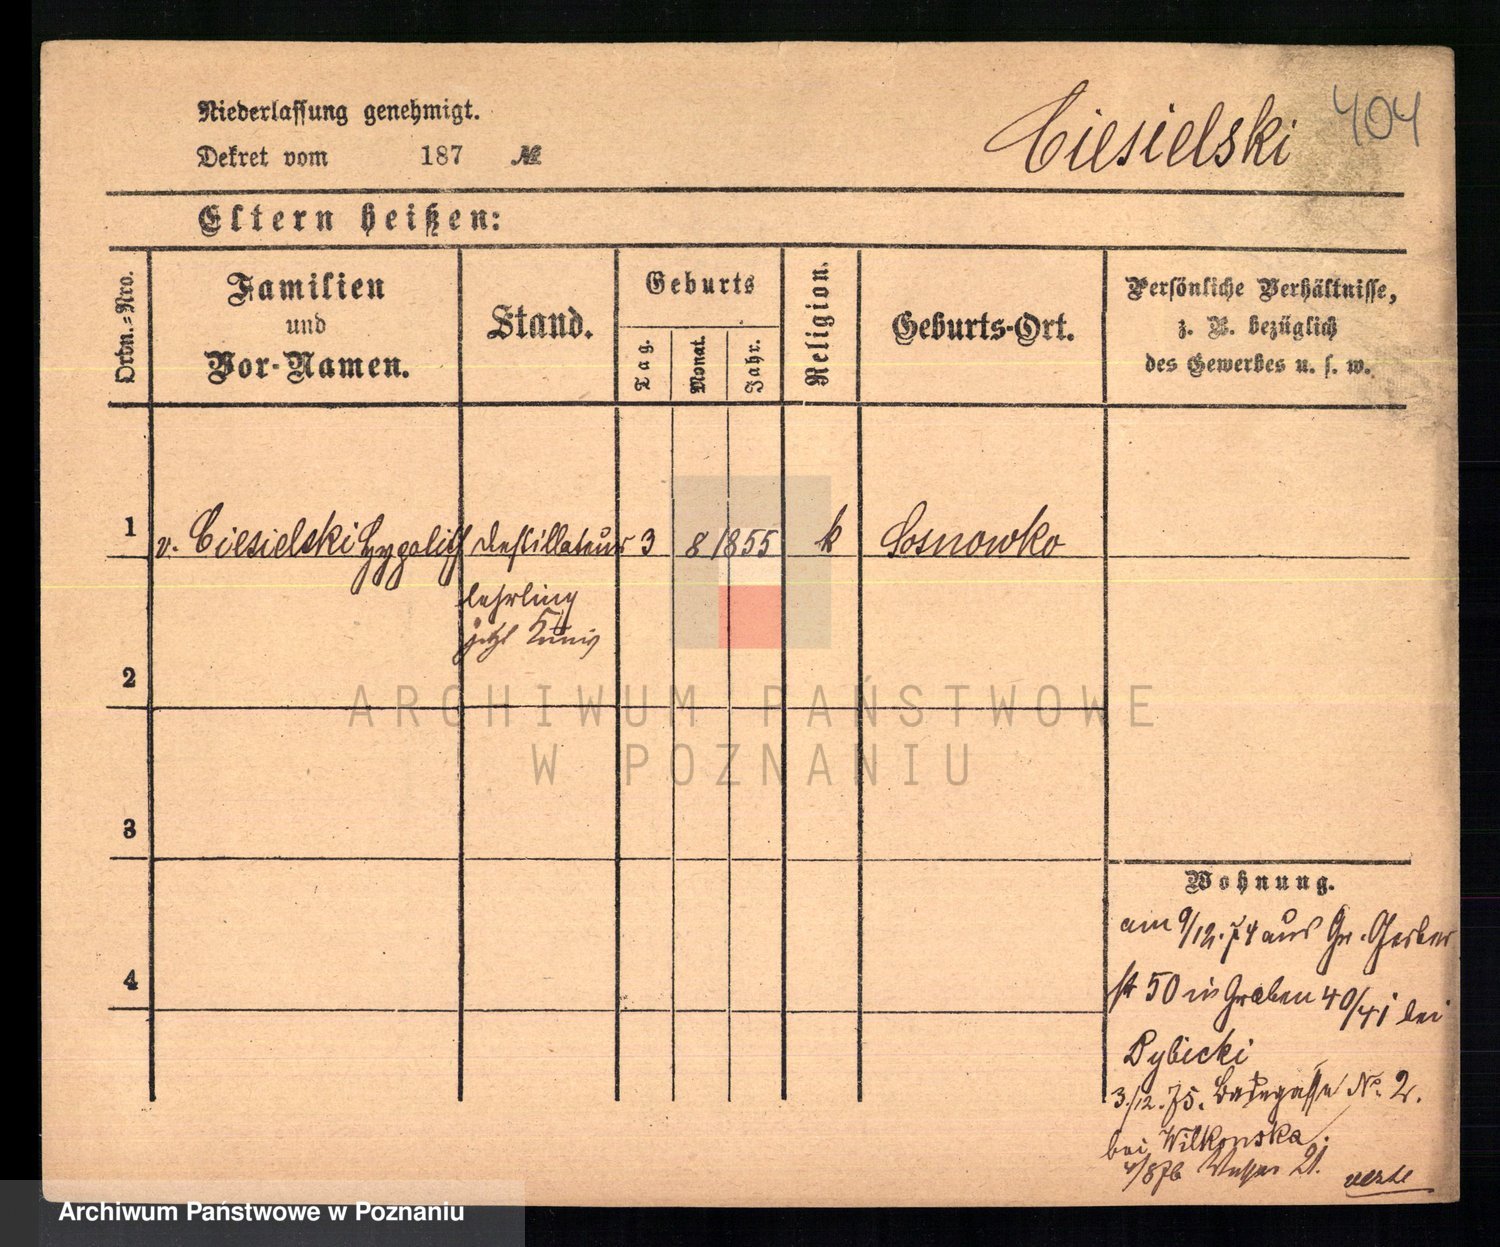 Niederlassung genehmigt.
Dekret vom 187 №
Ciesielski
404
Eltern heißen:
Ordn.=Nro.
Familien
und
Vor-Namen.
Stand.
Geburts
Tag.
Monat.
Jahr.
Religion.
Geburts-Ort.
Persönliche Verhältnisse,
z. B. bezüglich
des Gewerbes u. s. w.
1
v. Ciesielski Hypolith Destillateur 3 8 1855 k Sosnowko
lehrling
jetzt
2
3
4
Wohnung.
am 9/12. 74 aus Gr. Gerber
st 50 in Graben 40/41 bei
Rybicki
3./12. 75. No. 2.
bei Wilkonska.
4/8 76 21.
ARCHIWUM PAŃSTWOWE
W POZNANIU
Archiwum Państwowe w Poznaniu